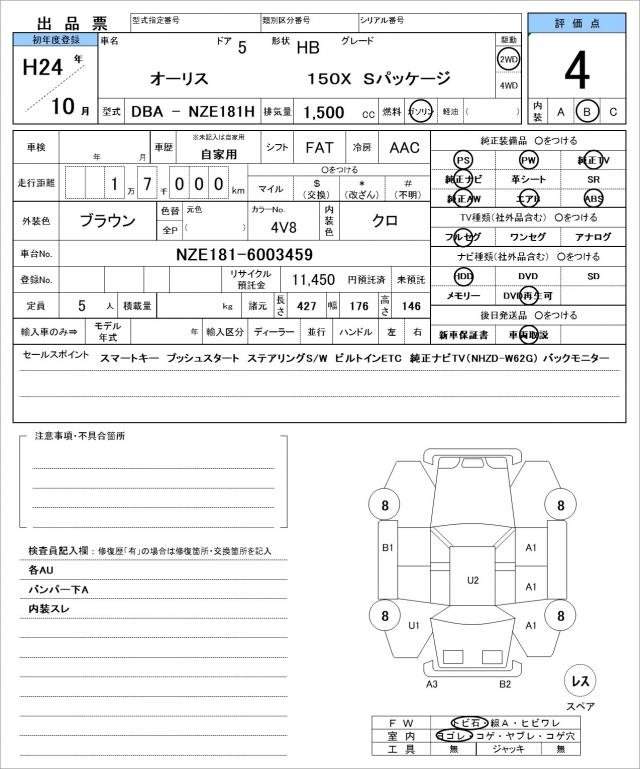 出品票 型式指定番号 類別区分番号 シリアル番号
評価点
4
内装 A B C
初年度登録 車名 ドア 5 形状 HB グレード 駆動
H24 年 オーリス 150X Sパッケージ 2WD
4WD
10 月 型式 DBA － NZE181H 排気量 1,500 cc 燃料 ガソリン 軽油 ( )
車検 年 月 車歴 ※未記入は自家用 自家用 シフト FAT 冷房 AAC
走行距離 1 万 7 千 0 0 0 km
○をつける
マイル $ (交換) * (改ざん) # (不明)
外装色 ブラウン 色替 全P 元色 ( ) カラーNo. 4V8 内装色 クロ
車台No. NZE181-6003459
登録No. リサイクル預託金 11,450 円預託済 未預託
定員 5 人 積載量 kg 諸元 長さ 427 幅 176 高さ 146
輸入車のみ⇒ モデル年式 年 輸入区分 ディーラー 並行 ハンドル 左 右
純正装備品 ○をつける
PS PW 純正TV
純正ナビ 革シート SR
純正AW エアB ABS
TV種類(社外品含む) ○をつける
フルセグ ワンセグ アナログ
ナビ種類(社外品含む) ○をつける
HDD DVD SD
メモリー DVD再生可
後日発送品 ○をつける
新車保証書 車両取説
セールスポイント スマートキー プッシュスタート ステアリングS/W ビルトインETC 純正ナビTV(NHZD-W62G) バックモニター
注意事項・不具合箇所
検査員記入欄：修復歴「有」の場合は修復箇所・交換箇所を記入
各AU
バンパー下A
内装スレ
8 8
B1 A1
U2 A1
8 U1 A1 8
A3 B2
レス
スペア
FW トビ石・線A・ヒビワレ
室内 ヨゴレ・コゲ・ヤブレ・コゲ穴
工具 無 ジャッキ 無